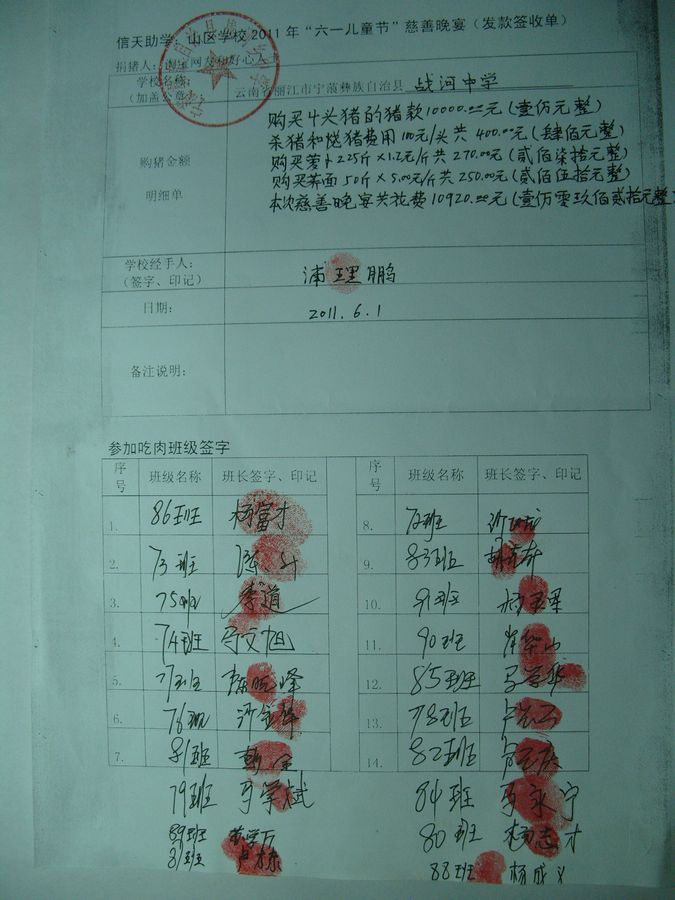 信天助学：山区学校2011年“六一儿童节”慈善晚宴（发款签收单）
捐猪人： 网友和好心人士
学校名称：
（加盖公章）
云南省丽江市宁蒗彝族自治县 战河中学
购猪金额
明细单
购买4头猪的猪款10000.00元(壹仿元整)
杀猪和烧猪费用100元/头共400.00元(肆佰元整)
购买萝卜225斤×1.2元/斤共270.00元(贰佰柒拾元整)
购买荞面50斤×5.00元/斤共250.00元(贰佰伍拾元整)
本次慈善晚宴共花费10920.00元(壹仿零玖佰贰拾元整)
学校经手人：
（签字、印记）
浦理鹏
日期：
2011.6.1
备注说明：
参加吃肉班级签字
序号 班级名称 班长签字、印记 序号 班级名称 班长签字、印记
1. 86班 杨富才 8. 72班
2. 73班 9. 83班
3. 75班 李道 10. 91班
4. 74班 马文旭 11. 90班
5. 77班 陈晓峰 12. 85班
6. 76班 沙金 13. 78班
7. 81班 14. 82班
79班 马学斌 84班 马永宁
89班 80班 杨志才
班 88班 杨成义